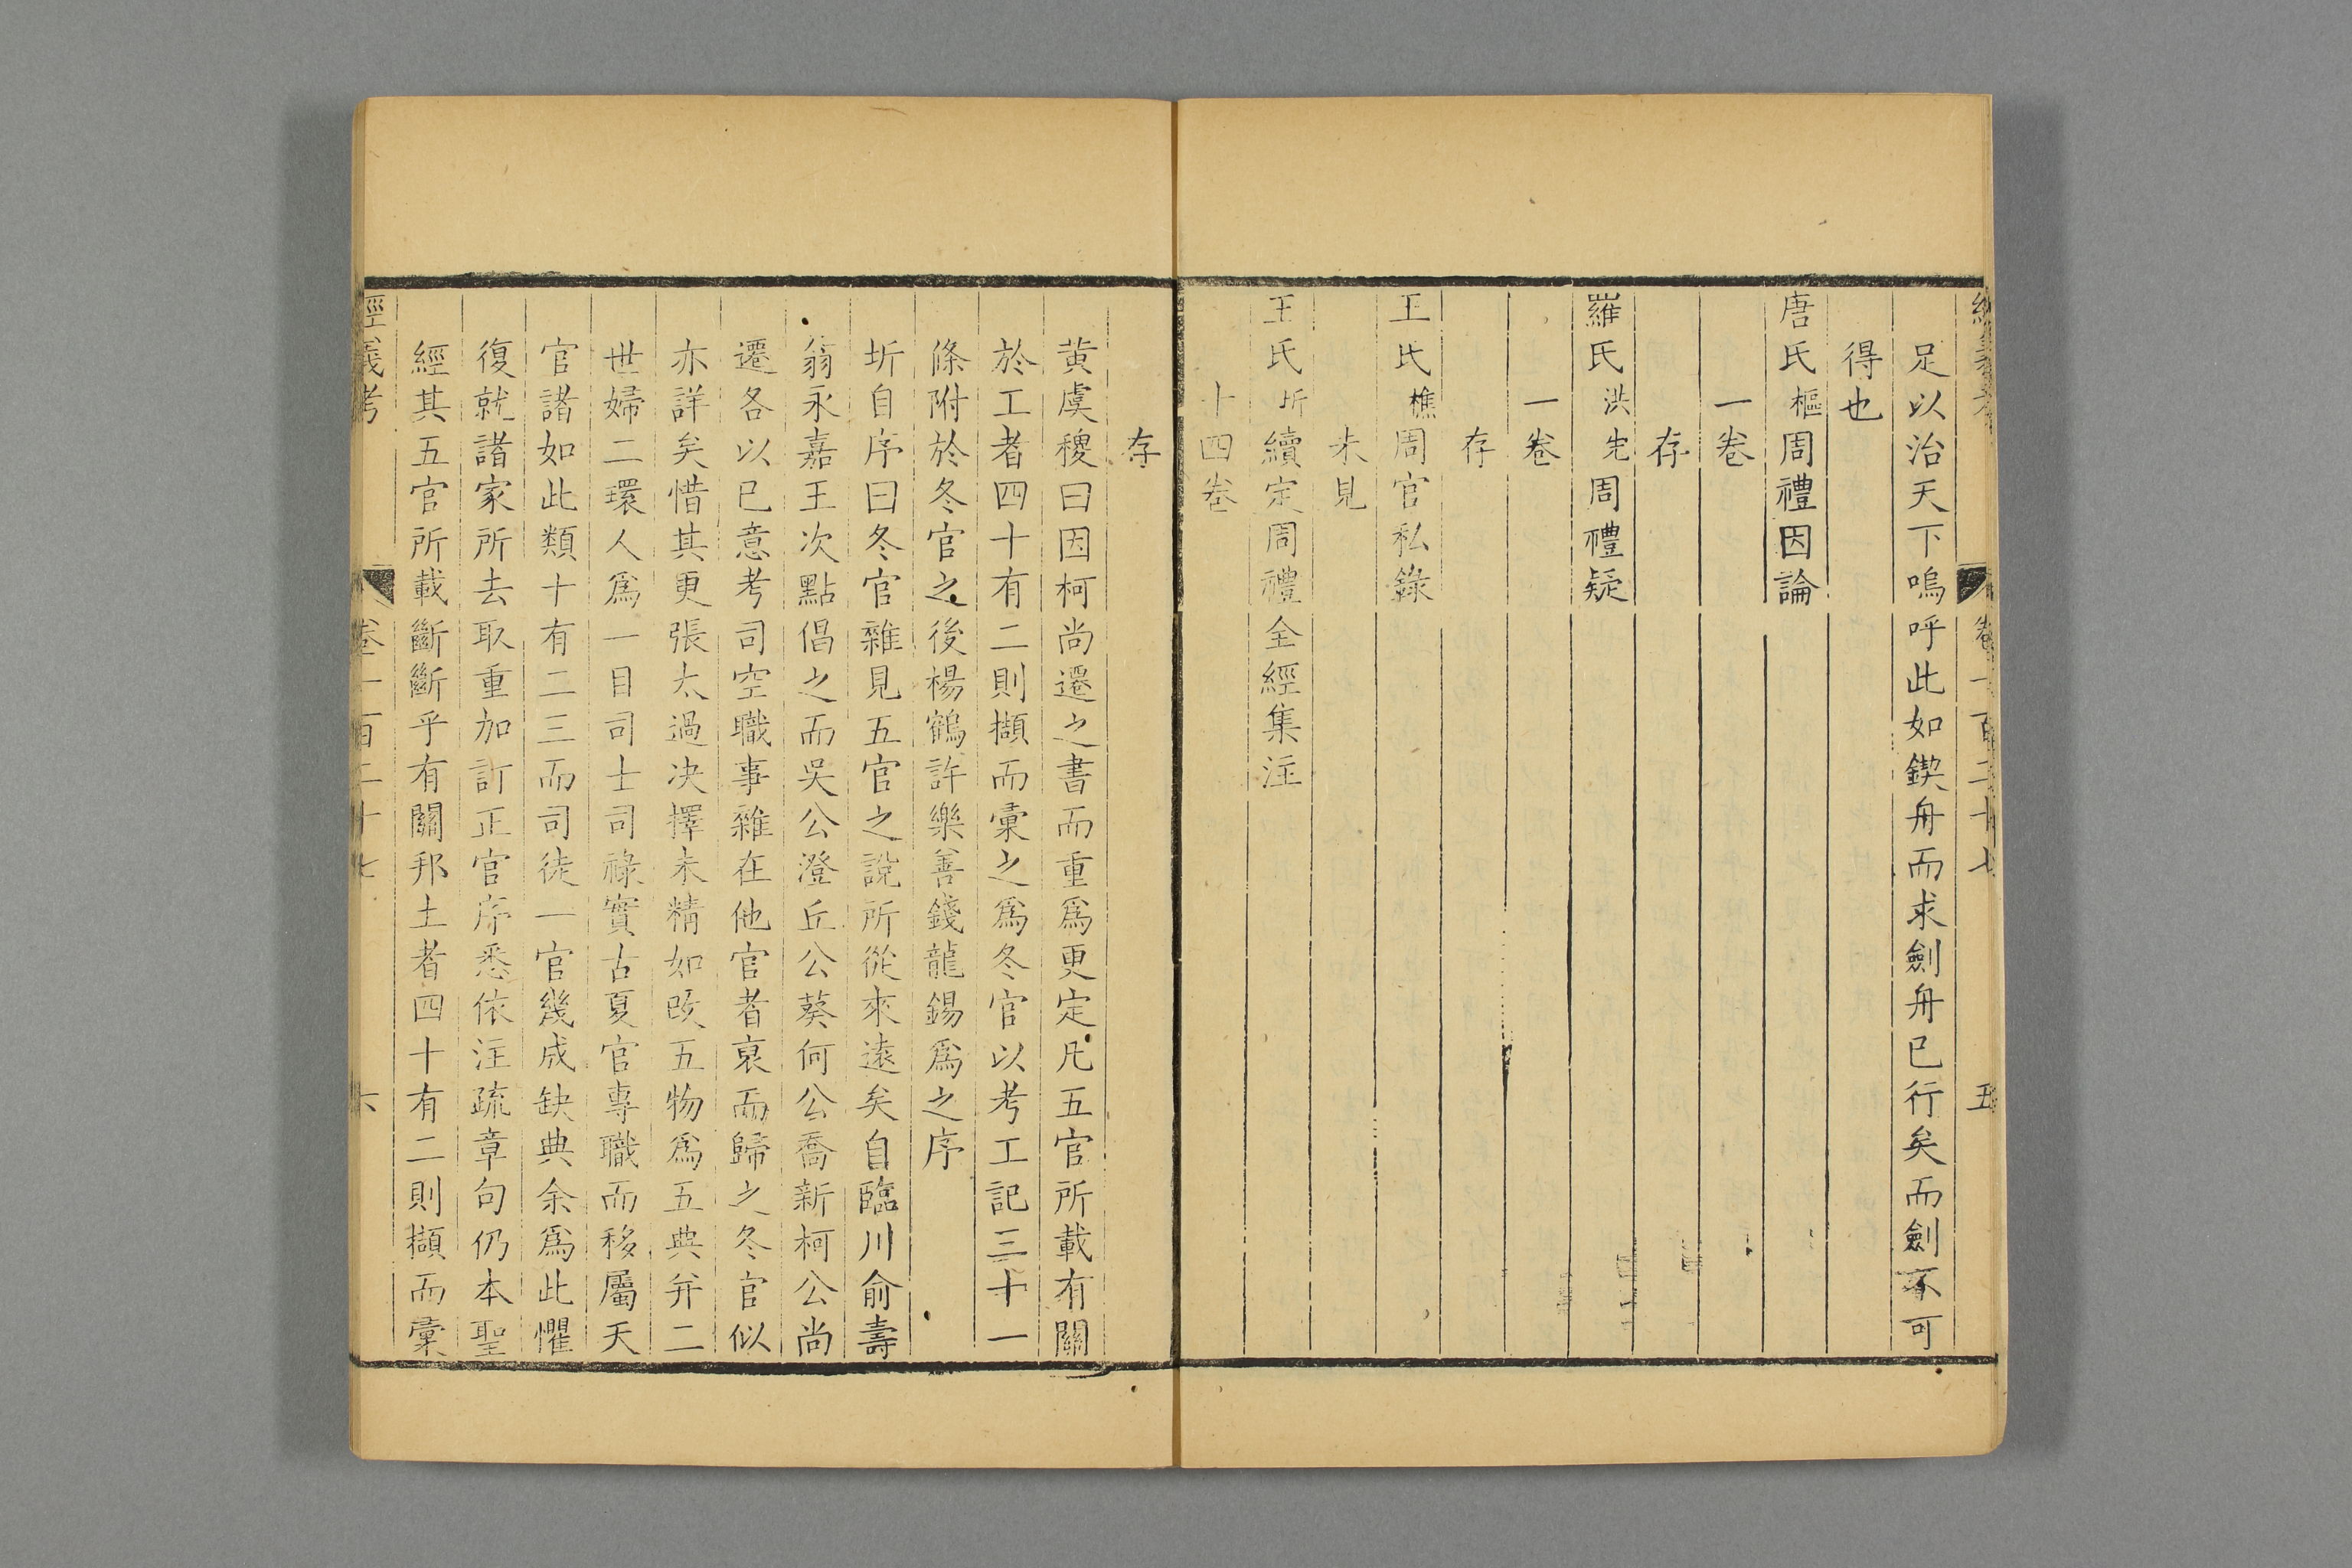 經義考 卷一百二十七 五
足以治天下嗚呼此如鍥舟而求劍舟已行矣而劍不可
得也
唐氏樞周禮因論
一卷
存
羅氏洪先周禮疑
一卷
存
王氏樵周官私錄
未見
王氏圻續定周禮全經集注
十四卷
存
黃虞稷曰因柯尚遷之書而重爲更定凡五官所載有關
於工者四十有二則擷而彙之爲冬官以考工記三十一
條附於冬官之後楊鶴許樂善錢龍錫爲之序
圻自序曰冬官雜見五官之說所從來遠矣自臨川俞壽
翁永嘉王次點倡之而吳公澄丘公葵何公喬新柯公尚
遷各以已意考司空職事雜在他官者裒而歸之冬官似
亦詳矣惜其更張太過决擇未精如改五物爲五典弁二
世婦二環人爲一目司士司祿實古夏官專職而移屬天
官諸如此類十有二三而司徒一官幾成缺典余爲此懼
復就諸家所去取重加訂正官序悉依注疏章句仍本聖
經其五官所載斷斷乎有關邦土者四十有二則擷而彙
經義考 卷一百二十七 六